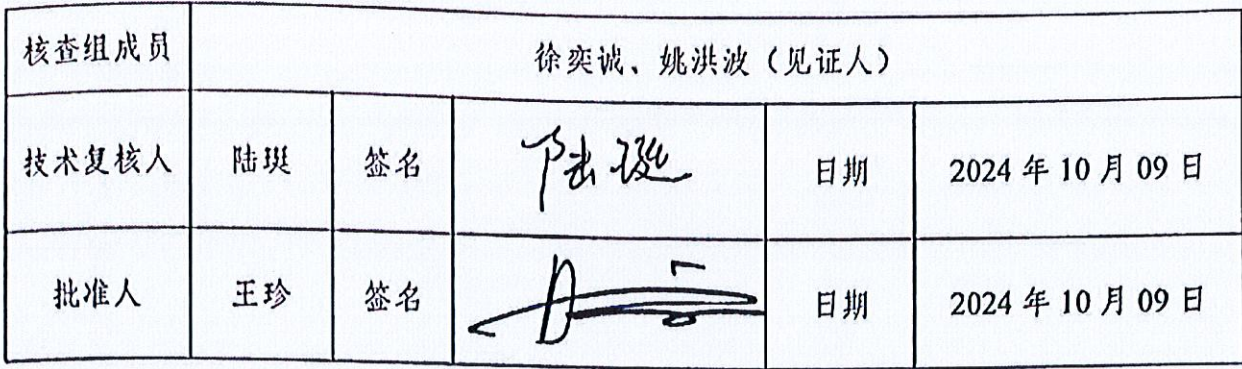 核查组成员 徐奕诚、姚洪波（见证人）
技术复核人 陆珽 签名 陆珽 日期 2024 年 10 月 09 日
批准人 王珍 签名 日期 2024 年 10 月 09 日